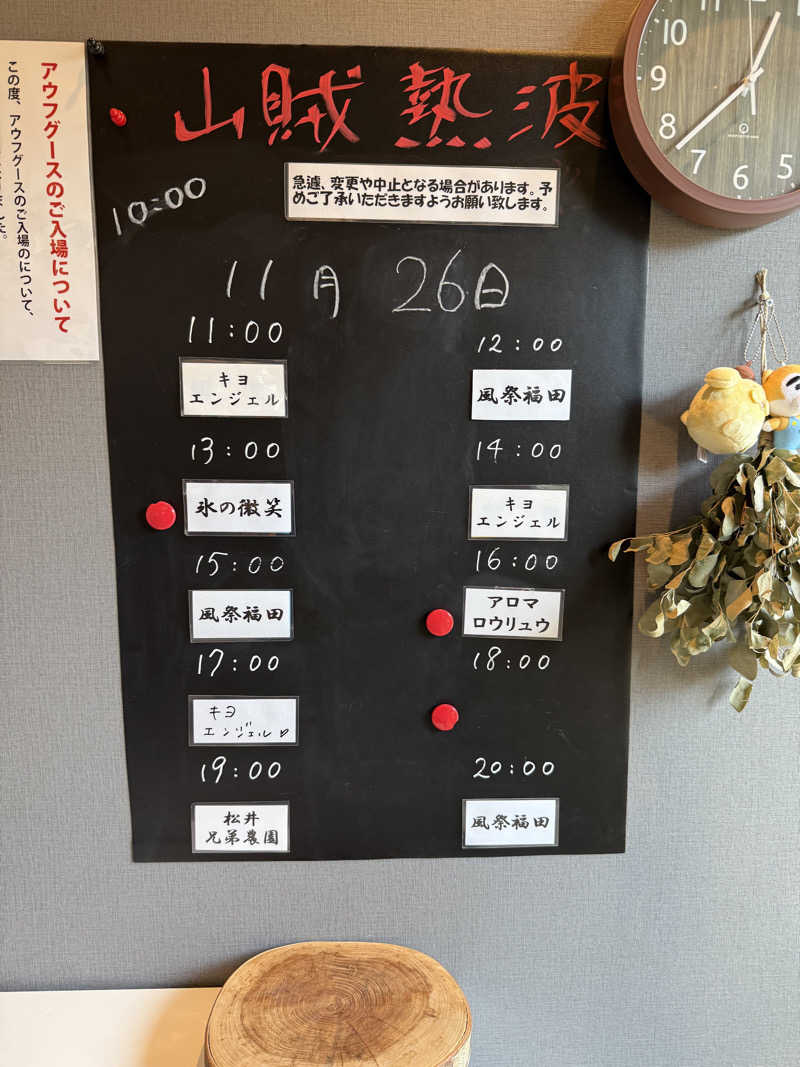 山賊熱波
急遽、変更や中止となる場合があります。予
めご了承いただきますようお願い致します。
10:00
11月 26日
11:00
キヨ
エンジェル
12:00
風祭福田
13:00
氷の微笑
14:00
キヨ
エンジェル
15:00
風祭福田
16:00
アロマ
ロウリュウ
17:00
キヨ
エンジェル♡
18:00
19:00
松井
兄弟農園
20:00
風祭福田
アウフグースのご入場について
この度、アウフグースのご入場のについて、
11
10
9
8
7
6
5